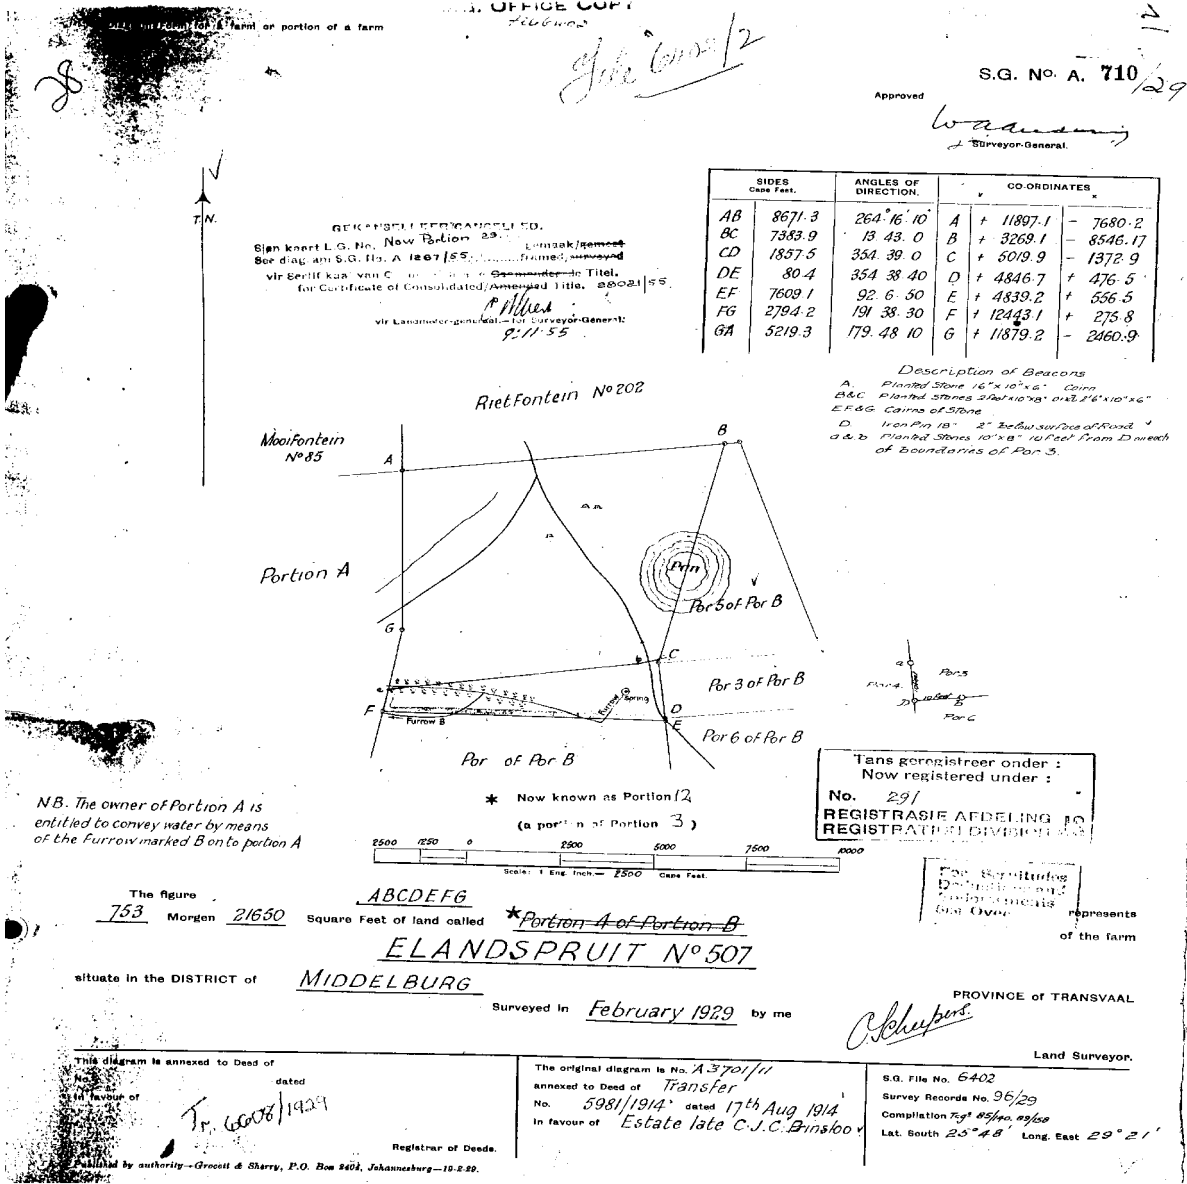 OFFICE COPY
farm or portion of a farm
File 6402/2
S.G. No. A. 710/29
Approved
Surveyor-General.
T.N.
GEKANSELLEER/CANCELLED.
Sien kaart L.G. No. Now Portion 29. gemaak/gemeet
See diagram S.G. No. A 1267/55 framed, surveyed
vir Sertifikaat van Titel.
for Certificate of Consolidated/Amended Title. 28021/55
vir Landmeter-generaal.—for Surveyor-General.
9.11.55
SIDES Cape Feet. ANGLES OF DIRECTION. CO-ORDINATES
y x
AB 8671.3 264° 16' 10" A + 11897.1 - 7680.2
BC 7383.9 13 43. 0 B + 3269.1 - 8546.17
CD 1857.5 354. 39. 0 C + 5019.9 - 1372.9
DE 80.4 354 38 40 D + 4846.7 + 476.5
EF 7609.1 92. 6. 50 E + 4839.2 + 556.5
FG 2794.2 191 38. 30 F + 12443.1 + 275.8
GA 5219.3 179. 48 10 G + 11879.2 - 2460.9
Description of Beacons
A. Planted Stone 16"x10"x6" Cairn
B&C Planted Stones 2feet x10"x8" and 2'6"x10"x6"
EF&G Cairns of Stone
D Iron Pin 18" 2" below surface of Road
a & b Planted Stones 10"x8" 10 feet from D on each
of boundaries of Por 3.
Rietfontein No 202
Mooifontein
No 85
A
B
Portion A
Por 5 of Por B
G
C
b
e
Por 3 of Por B
Furrow
Spring
F
Furrow B
D
E
Por 6 of Por B
Por of Por B
a
Por 3
Por 4
D 10 feet b
Por 6
N.B. The owner of Portion A is
entitled to convey water by means
of the Furrow marked B on to portion A
* Now known as Portion 12
(a portion of Portion 3)
Tans geregistreer onder :
Now registered under :
No. 291
REGISTRASIE AFDELING
REGISTRATION DIVISION
2500 1250 0 2500 5000 7500 10000
Scale: 1 Eng. Inch.— 2500 Cape Feet.
For Servitudes
Endorsements
See Over
The figure ABCDEFG
753 Morgen 21650 Square Feet of land called *Portion 4 of Portion B represents
of the farm
ELANDSPRUIT No 507
situate in the DISTRICT of MIDDELBURG
PROVINCE of TRANSVAAL
Surveyed in February 1929 by me
C. Scheepers.
Land Surveyor.
This diagram is annexed to Deed of
No. dated
in favour of
Tr. 6608/1929
Registrar of Deeds.
The original diagram is No. A3701/11
annexed to Deed of Transfer
No. 5981/1914 dated 17th Aug 1914
in favour of Estate late C.J.C. Brinsloo
S.G. File No. 6402
Survey Records No. 96/29
Compilation Tegs 85/140. 89/158
Lat. South 25° 48' Long. East 29° 21'
Published by authority—Grocott & Sherry, P.O. Box 2402, Johannesburg—19-2-29.